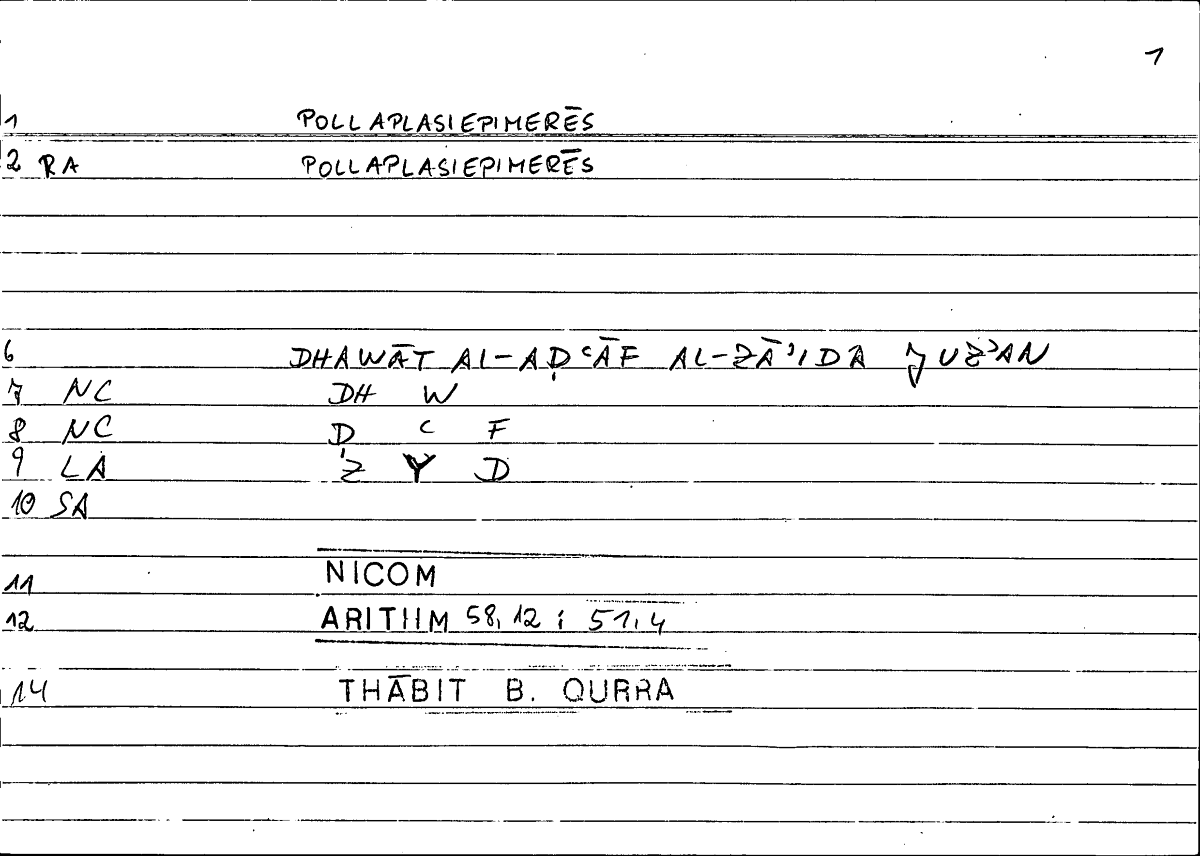 1
1 POLLAPLASIEPIMERĒS
2 RA POLLAPLASIEPIMERĒS
6 DHAWĀT AL-AḌʿĀF AL-ZĀʾIDA JUZʾAN
7 NC DH W
8 NC Ḍ ʿ F
9 LA Z Y D
10 SA
11 NICOM
12 ARITHM 58,12 ; 51,4
14 THĀBIT B. QURRA